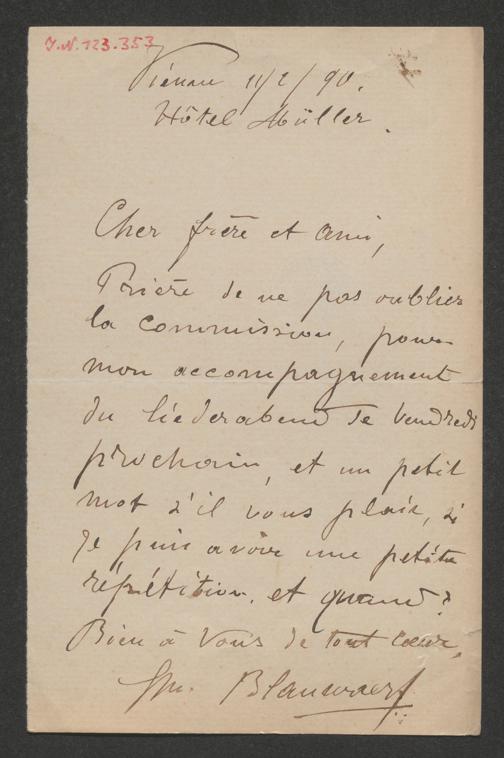 I.N. 123.353
Vienne 11/2/90.
Hôtel Müller.
Cher frère et ami,
Prière de ne pas oublier
la commission, pour
mon accompagnement
du liederabend de Vendredi
prochain, et un petit
mot s'il vous plait, si
je puis avoir une petite
répétition, et quand?
Bien à Vous de tout cœur,
Blauwaert